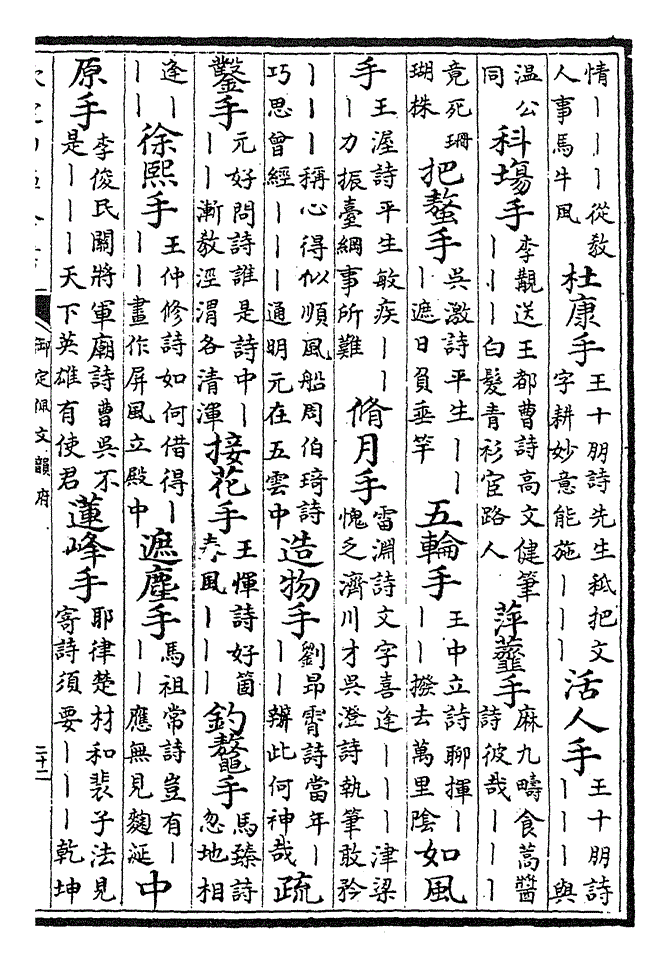 情丨丨丨從教人事馬牛風杜康手王十朋詩先生秪把文字耕妙意能施丨丨丨活人手王十朋詩丨丨丨與
温公同科場手李覯送王都曹詩高文健筆丨丨丨白髮青衫宦路人萍虀手麻九疇食蒿醬詩彼哉丨丨丨
竟死珊瑚株把螯手吳激詩平生丨丨丨遮日負垂竿五輪手王中立詩聊揮丨丨丨撥去萬里陰如風
手王渥詩平生敏疾丨丨丨力振臺綱事所難脩月手雷淵詩文字喜逢丨丨丨津梁愧乏濟川才吳澄詩執筆敢矜
丨丨丨稱心得似順風船周伯琦詩巧思曾經丨丨丨通明元在五雲中造物手劉昂霄詩當年丨丨丨辦此何神哉疏
鑿手元好問詩誰是詩中丨丨丨漸教涇渭各清渾接花手王惲詩好箇春風丨丨丨釣鼇手馬臻詩忽地相
逢丨丨丨徐熙手王仲修詩如何借得丨丨丨畫作屏風立殿中遮塵手馬祖常詩豈有丨丨丨應無見麴涎中
原手李俊民關將軍廟詩曹吳不是丨丨丨天下英雄有使君蓮峰手耶律楚材和裴子法見寄詩須要丨丨丨乾坤
御定佩文韻府
二十二